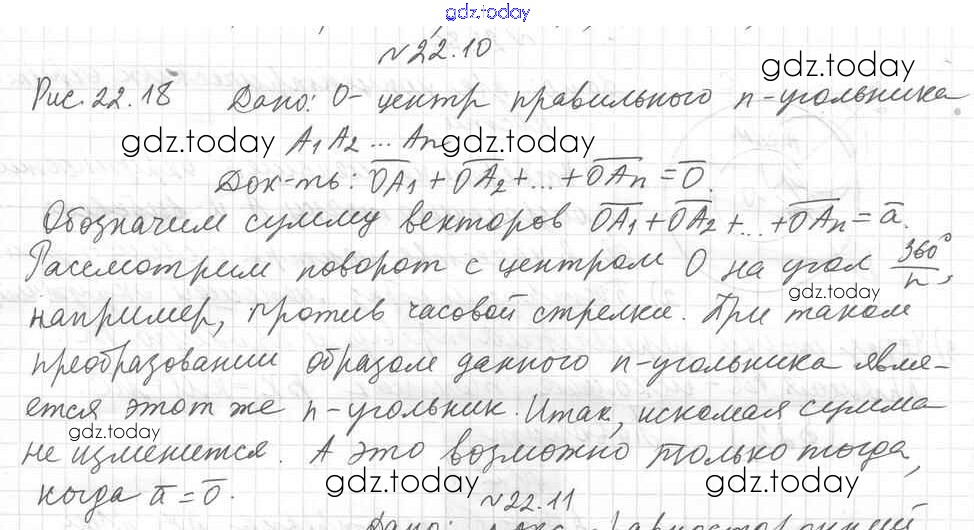 gdz.today
№22.10
gdz.today
Рис. 22.18 Дано: О- центр правильного n-угольника
gdz.today A₁A₂ ... Aₙ gdz.today
Док-ть: O̅A̅₁ + O̅A̅₂ + ... + O̅A̅ₙ = 0̅.
Обозначим сумму векторов O̅A̅₁ + O̅A̅₂ + ... + O̅A̅ₙ = a̅.
Рассмотрим поворот с центром О на угол 360°/n,
gdz.today
например, против часовой стрелки. При таком
преобразовании образом данного n-угольника явля-
ется этот же n-угольник. Итак, искомая сумма
gdz.today
не изменится. А это возможно только тогда,
когда a̅ = 0̅.
gdz.today gdz.today
№22.11
Дано: